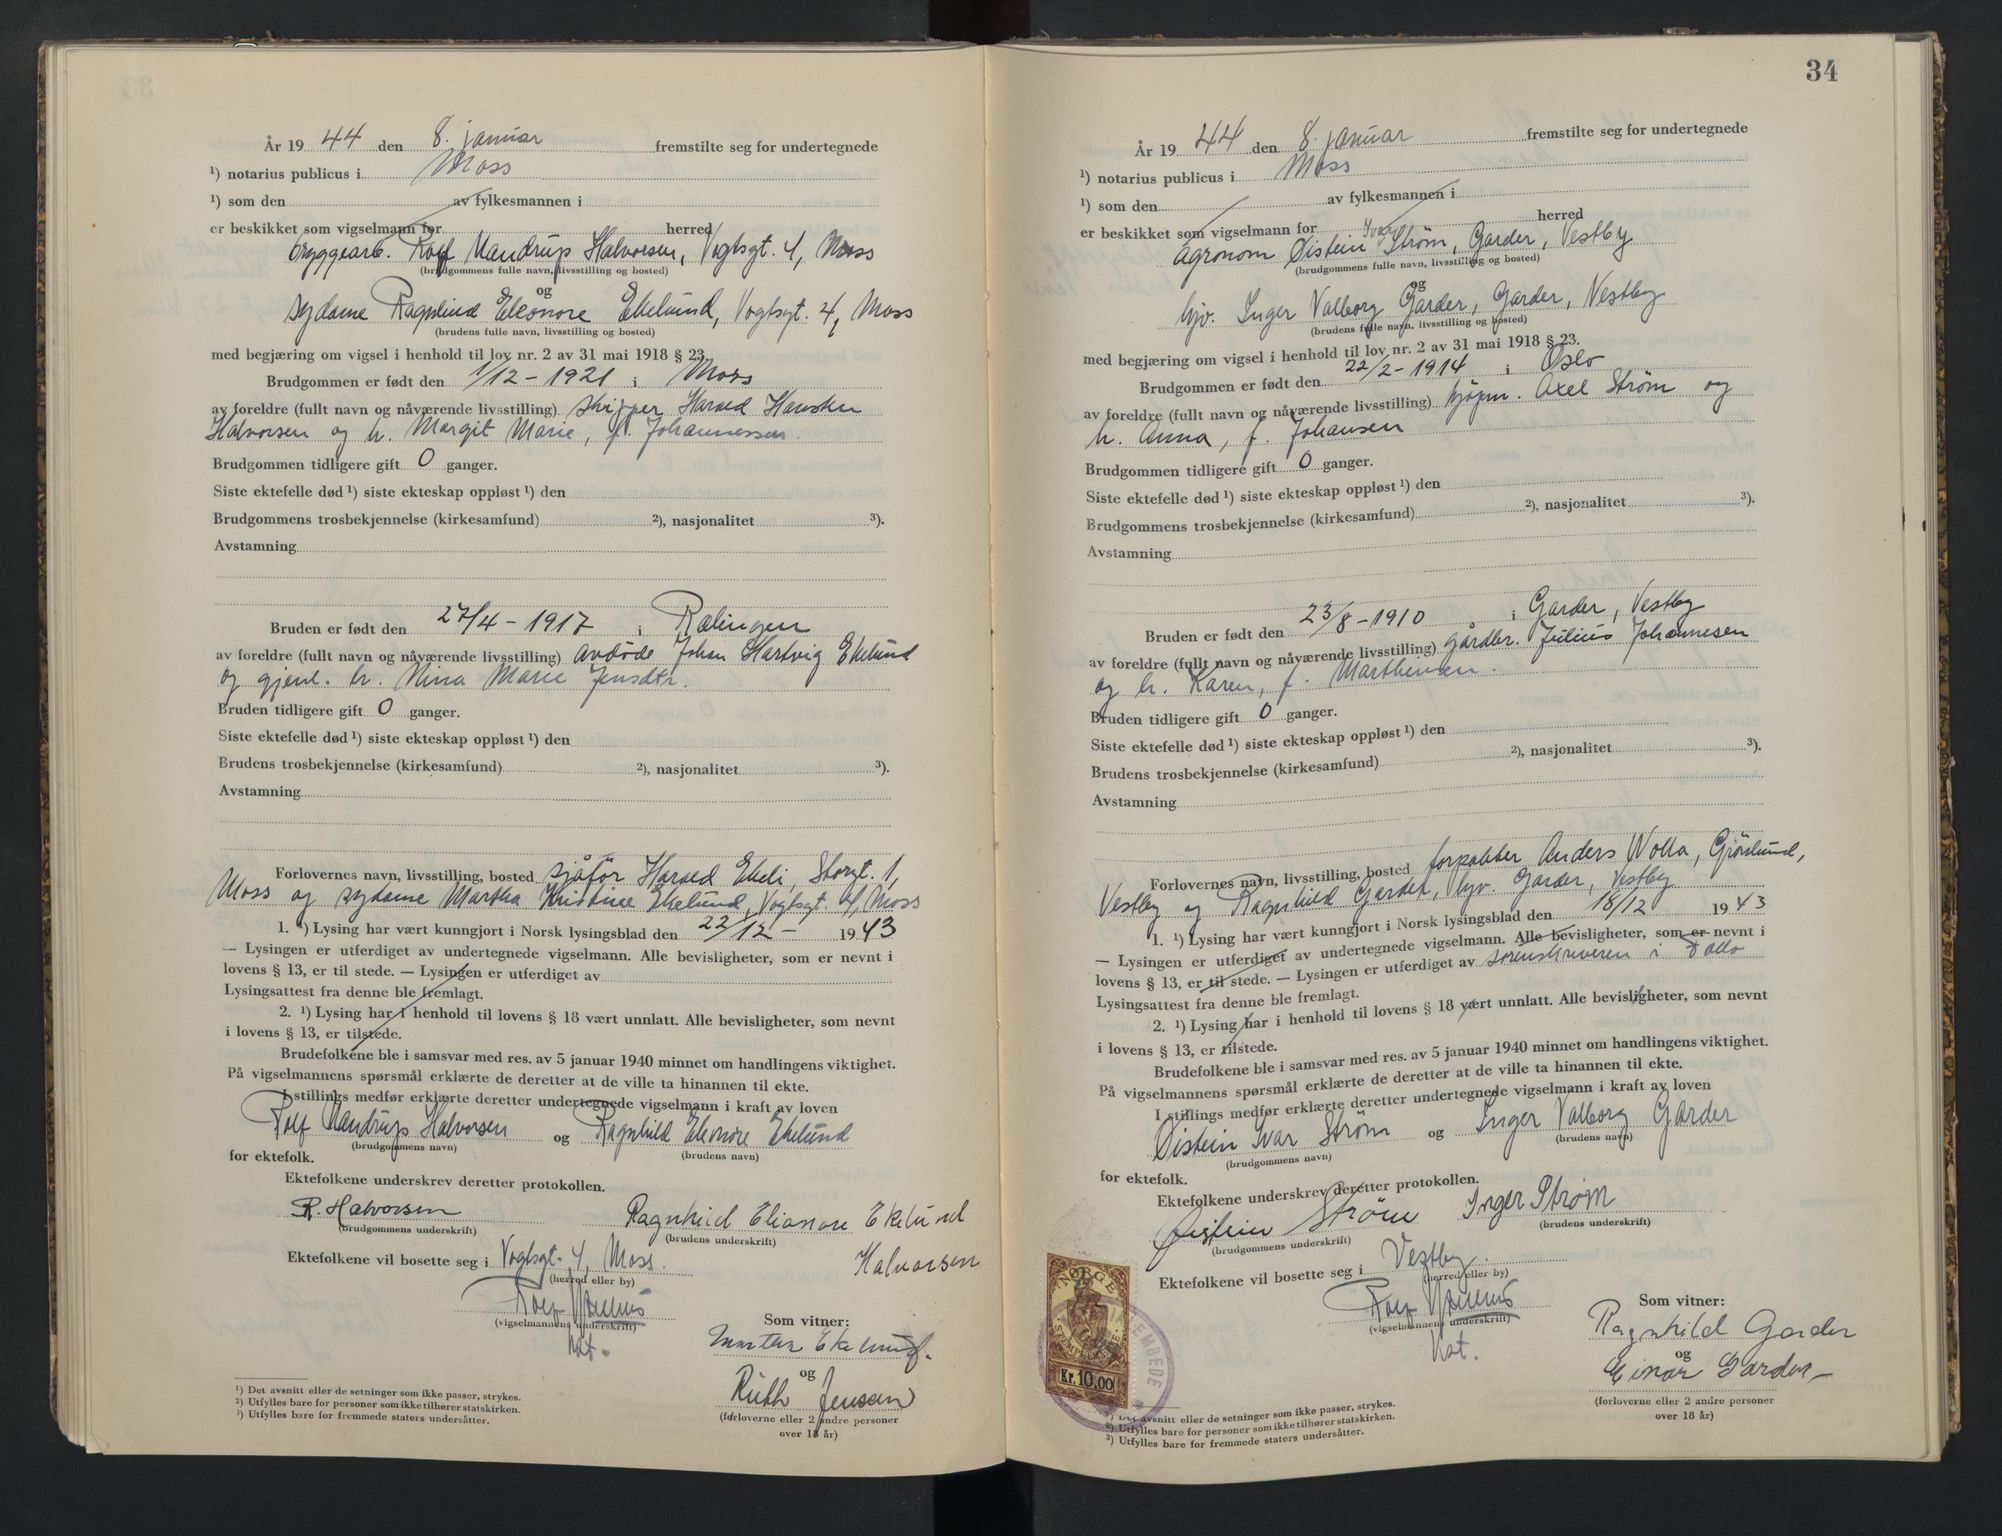 År 19 44 den 8. januar fremstilte seg for undertegnede
¹) notarius publicus i Moss
¹) som den av fylkesmannen i
er beskikket som vigselmann for herred
bryggearb. Rolf Mandrup Halvorsen, Vogtsgt. 4, Moss
(brudgommens fulle navn, livsstilling og bosted)
og
sydame Ragnhild Eleonore Ekelund, Vogtsgt. 4, Moss
(brudens fulle navn, livsstilling og bosted)
med begjæring om vigsel i henhold til lov nr. 2 av 31 mai 1918 § 23.
Brudgommen er født den 1/12 - 1921 i Moss
av foreldre (fullt navn og nåværende livsstilling) skipper Harald
Halvorsen og h. Margit Marie, f. Johannessen.
Brudgommen tidligere gift 0 ganger.
Siste ektefelle død ¹) siste ekteskap oppløst ¹) den
Brudgommens trosbekjennelse (kirkesamfund) ²), nasjonalitet ³).
Avstamning
Bruden er født den 27/4 - 1917 i Rælingen
av foreldre (fullt navn og nåværende livsstilling) avdøde Johan Hartvig Ekelund
og gjenl. h. Nina Marie Jensdtr.
Bruden tidligere gift 0 ganger.
Siste ektefelle død ¹) siste ekteskap oppløst ¹) den
Brudens trosbekjennelse (kirkesamfund) ²), nasjonalitet ³).
Avstamning
Forlovernes navn, livsstilling, bosted sjåfør Harald Ekeli, Storgt. 1,
Moss og sydame Martha Kristine Ekelund, Vogtsgt. 4, Moss
1. ¹) Lysing har vært kunngjort i Norsk lysingsblad den 22/12 - 1943
— Lysingen er utferdiget av undertegnede vigselmann. Alle bevisligheter, som er nevnt i
lovens § 13, er til stede. — Lysingen er utferdiget av
Lysingsattest fra denne ble fremlagt.
2. ¹) Lysing har i henhold til lovens § 18 vært unnlatt. Alle bevisligheter, som nevnt
i lovens § 13, er tilstede.
Brudefolkene ble i samsvar med res. av 5 januar 1940 minnet om handlingens viktighet.
På vigselmannens spørsmål erklærte de deretter at de ville ta hinannen til ekte.
I stillings medfør erklærte deretter undertegnede vigselmann i kraft av loven
Rolf Mandrup Halvorsen og Ragnhild Eleonore Ekelund
(brudgommens navn) (brudens navn)
for ektefolk.
Ektefolkene underskrev deretter protokollen.
R. Halvorsen Ragnhild Elianore Ekelund
(brudgommens underskrift) (brudens underskrift)
Halvorsen
Ektefolkene vil bosette seg i Vogtsgt. 4, Moss.
(herred eller by)
Rolf
(vigselmannens underskrift)
Som vitner:
Ekelund.
og
Ruth Jensen
(forloverne eller 2 andre personer
over 18 år)
¹) Det avsnitt eller de setninger som ikke passer, strykes.
²) Utfylles bare for personer som ikke tilhører statskirken.
³) Utfylles bare for fremmede staters undersåtter.
34
År 19 44 den 8. januar fremstilte seg for undertegnede
¹) notarius publicus i Moss
¹) som den av fylkesmannen i
er beskikket som vigselmann for herred
Ivar
agronom Øistein Strøm, Garder, Vestby
(brudgommens fulle navn, livsstilling og bosted)
og
hjv. Inger Valborg Garder, Garder, Vestby
(brudens fulle navn, livsstilling og bosted)
med begjæring om vigsel i henhold til lov nr. 2 av 31 mai 1918 § 23.
Brudgommen er født den 22/2 - 1914 i Oslo
av foreldre (fullt navn og nåværende livsstilling) kjøpm. Axel Strøm og
h. Anna, f. Johansen
Brudgommen tidligere gift 0 ganger.
Siste ektefelle død ¹) siste ekteskap oppløst ¹) den
Brudgommens trosbekjennelse (kirkesamfund) ²), nasjonalitet ³).
Avstamning
Bruden er født den 23/8 - 1910 i Garder, Vestby
av foreldre (fullt navn og nåværende livsstilling) gårdbr. Julius Johannesen
og h. Karen, f. Marthinsen.
Bruden tidligere gift 0 ganger.
Siste ektefelle død ¹) siste ekteskap oppløst ¹) den
Brudens trosbekjennelse (kirkesamfund) ²), nasjonalitet ³).
Avstamning
Forlovernes navn, livsstilling, bosted forpakter Anders Wolla,
Vestby og Ragnhild Garder, hjv. Garder, Vestby
1. ¹) Lysing har vært kunngjort i Norsk lysingsblad den 18/12 1943
— Lysingen er utferdiget av undertegnede vigselmann. Alle bevisligheter, som er nevnt i
lovens § 13, er til stede. — Lysingen er utferdiget av sorenskriveren i Follo
Lysingsattest fra denne ble fremlagt.
2. ¹) Lysing har i henhold til lovens § 18 vært unnlatt. Alle bevisligheter, som nevnt
i lovens § 13, er tilstede.
Brudefolkene ble i samsvar med res. av 5 januar 1940 minnet om handlingens viktighet.
På vigselmannens spørsmål erklærte de deretter at de ville ta hinannen til ekte.
I stillings medfør erklærte deretter undertegnede vigselmann i kraft av loven
Øistein Ivar Strøm og Inger Valborg Garder
(brudgommens navn) (brudens navn)
for ektefolk.
Ektefolkene underskrev deretter protokollen.
Øistein Strøm Inger Strøm
(brudgommens underskrift) (brudens underskrift)
Ektefolkene vil bosette seg i Vestby.
(herred eller by)
Rolf
(vigselmannens underskrift)
NORGE
STEMPELMERKE
Kr. 10,00
EMBEDE
Som vitner:
Ragnhild Garder
og
Einar Garder
(forloverne eller 2 andre personer
over 18 år)
¹) Det avsnitt eller de setninger som ikke passer, strykes.
²) Utfylles bare for personer som ikke tilhører statskirken.
³) Utfylles bare for fremmede staters undersåtter.